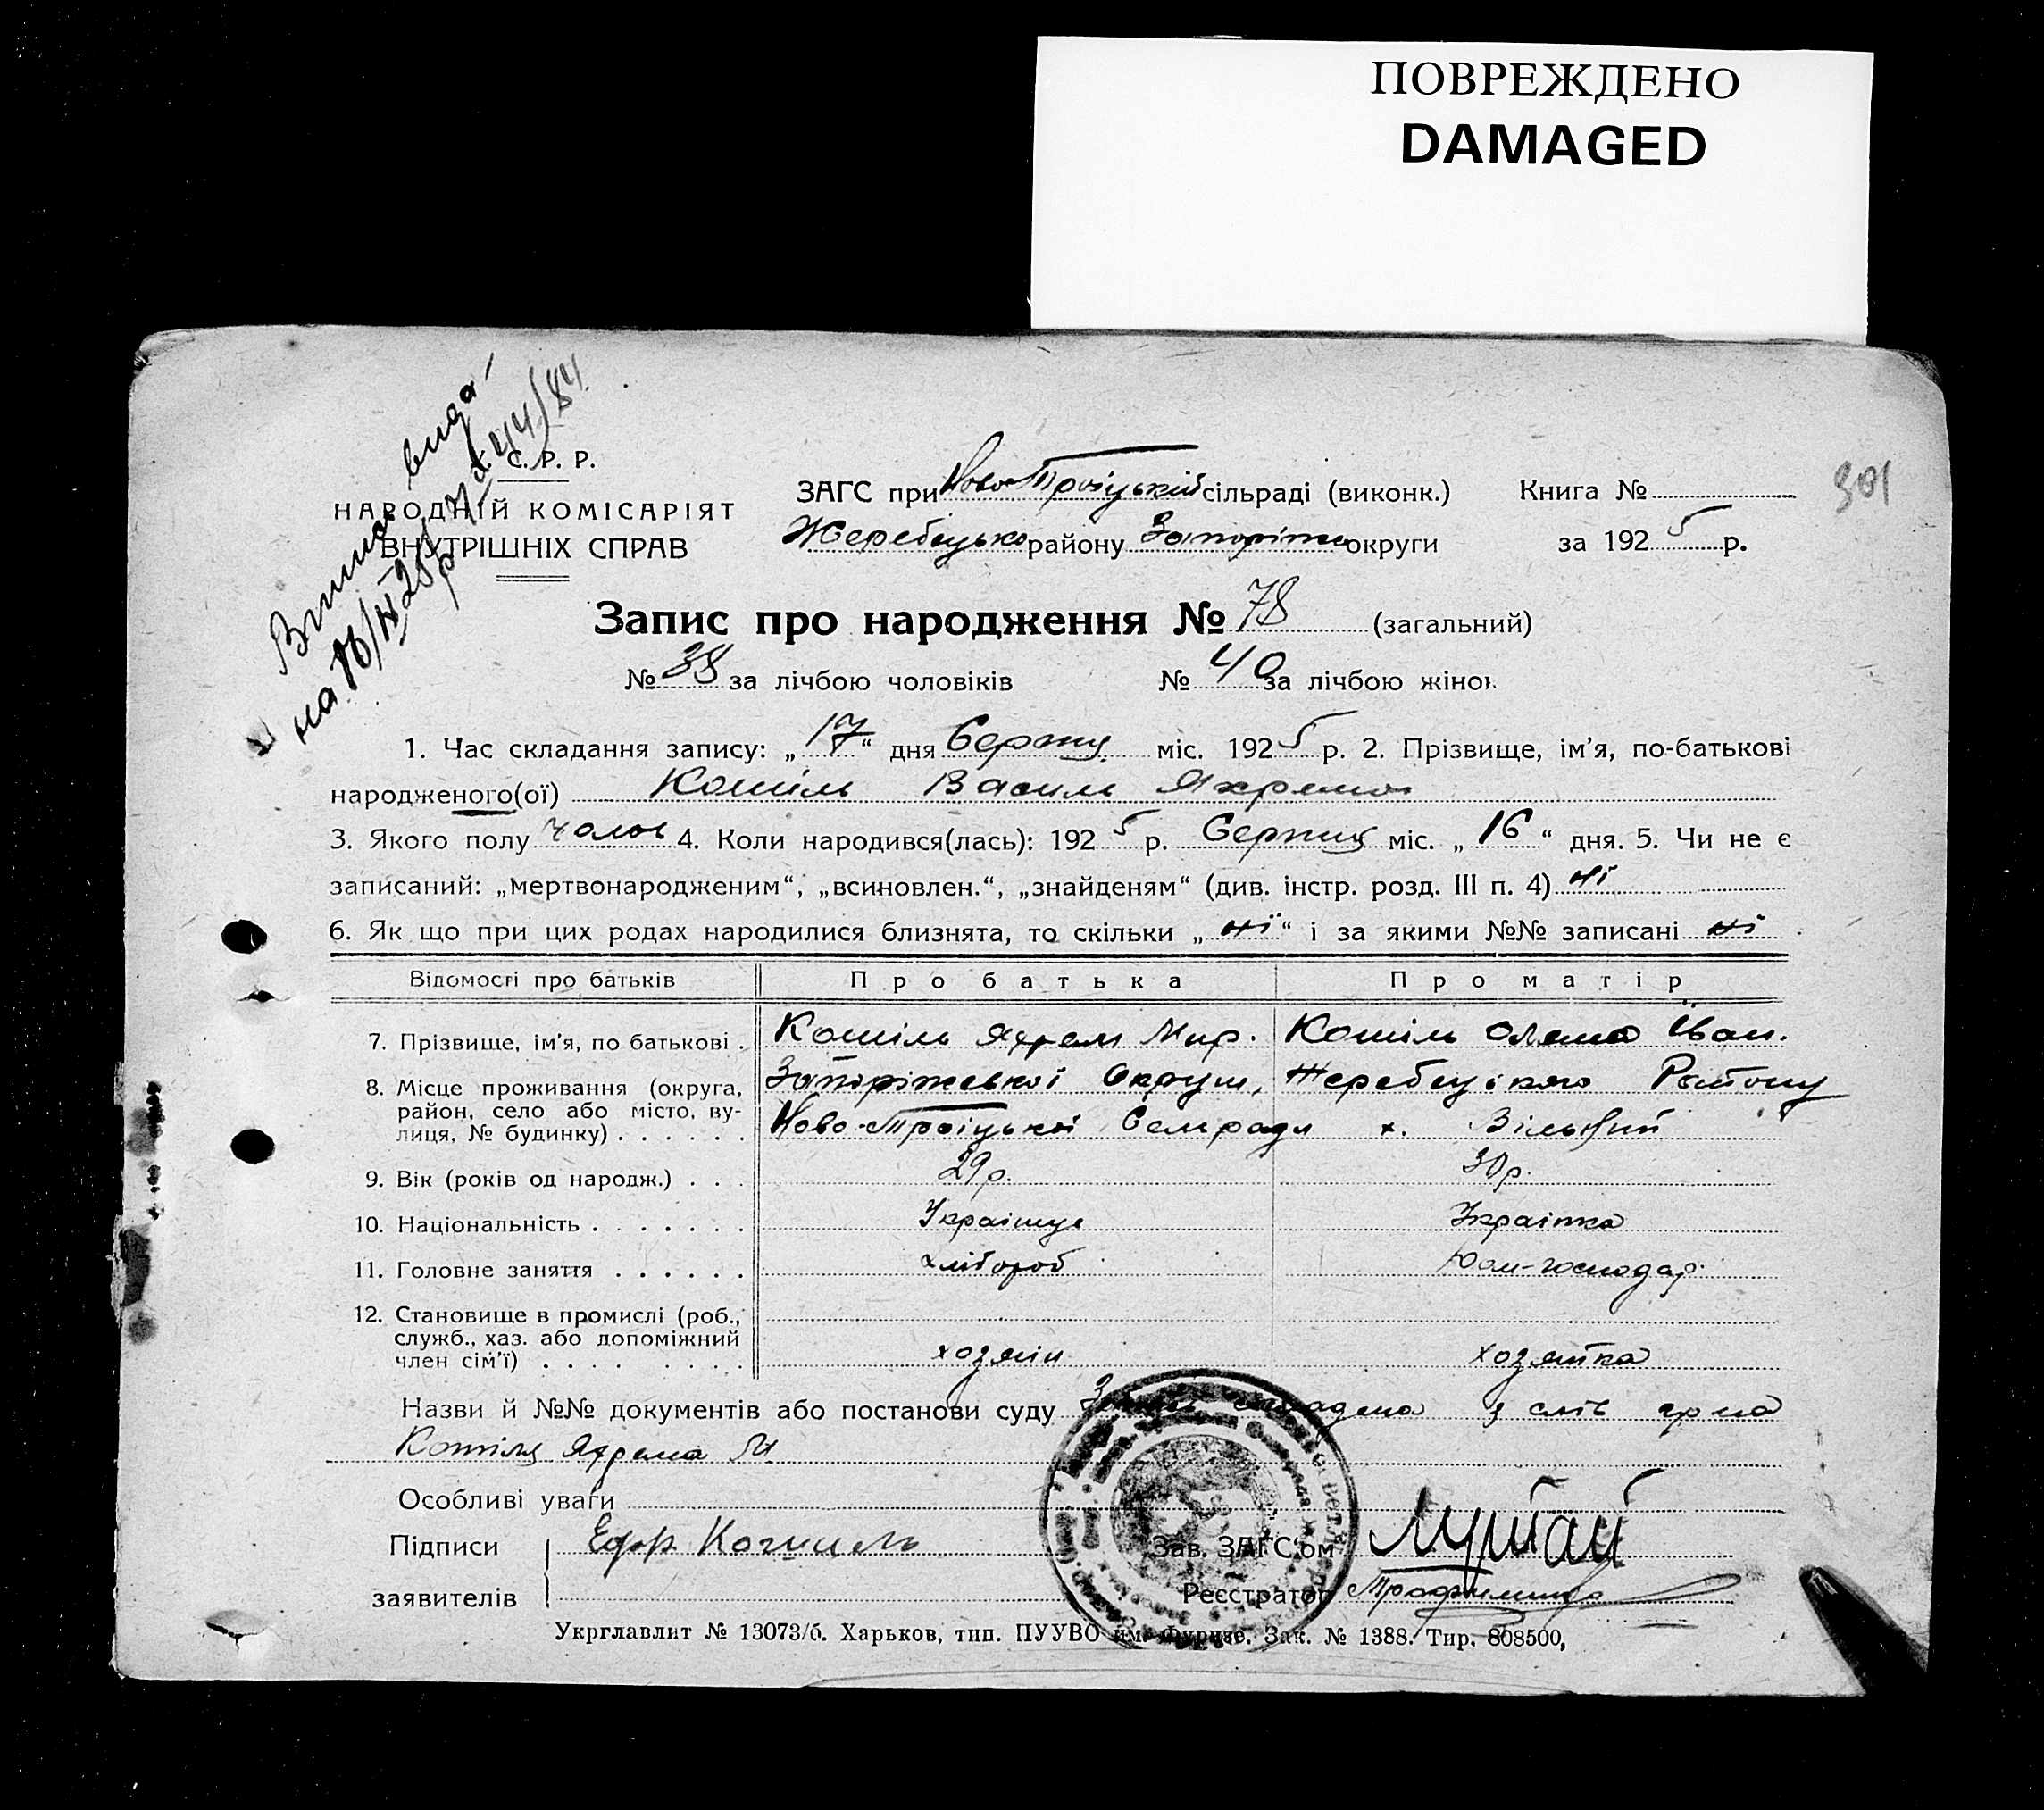 ПОВРЕЖДЕНО
DAMAGED
301
Випис вида-
С. Р. Р.
НАРОДНІЙ КОМІСАРІЯТ
ВНУТРІШНІХ СПРАВ
ЗАГС при Ново-Троїцькій сільраді (виконк.) Книга №
Жеребецько району Запоріж округи за 1925 р.
Запис про народження № 78 (загальний)
№ 38 за лічбою чоловіків № 40 за лічбою жінок
1. Час складання запису: „17“ дня Серпня міс. 1925 р. 2. Прізвище, ім'я, по-батькові
народженого(ої) Кошіль Василь Яхремов
3. Якого полу чолов 4. Коли народився(лась): 1925 р. Серпня міс. „16“ дня. 5. Чи не є
записаний: „мертвонародженим“, „всиновлен.“, „знайденям“ (див. інстр. розд. III п. 4) ні
6. Як що при цих родах народилися близнята, то скільки „ні“ і за якими №№ записані ні
Відомості про батьків Про батька Про матір
7. Прізвище, ім'я, по батькові . Кошіль Яхрем Мир. Кошіль Олена Іван.
8. Місце проживання (округа, район, село або місто, вулиця, № будинку) . . . . . . Запоріжської Округи, Жеребецького Району
Ново-Троїцької Сельради х. Вільний
9. Вік (років од народж.) . . . 29 р. 30 р.
10. Національність . . . . . . . Українц Українка
11. Головне заняття . . . . . . хлібороб Дом-господар.
12. Становище в промислі (роб., служб., хаз. або допоміжний член сім'ї) . . . . хозяїн хозяйка
Назви й №№ документів або постанови суду Запис складено з слів гр-на
Кошіля Яхрема М
Особливі уваги
Підписи Ефр Кошиль Зав. ЗАГС'ом
заявителів Реєстратор
Укрглавлит № 13073/б. Харьков, тип. ПУУВО им. Фрунзе. Зак. № 1388. Тир. 808500,